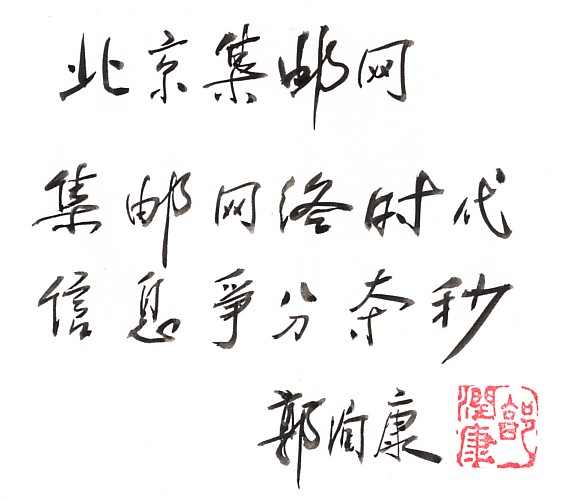 北京集邮网
集邮网络时代
信息爭分夺秒
郭润康
郭润康